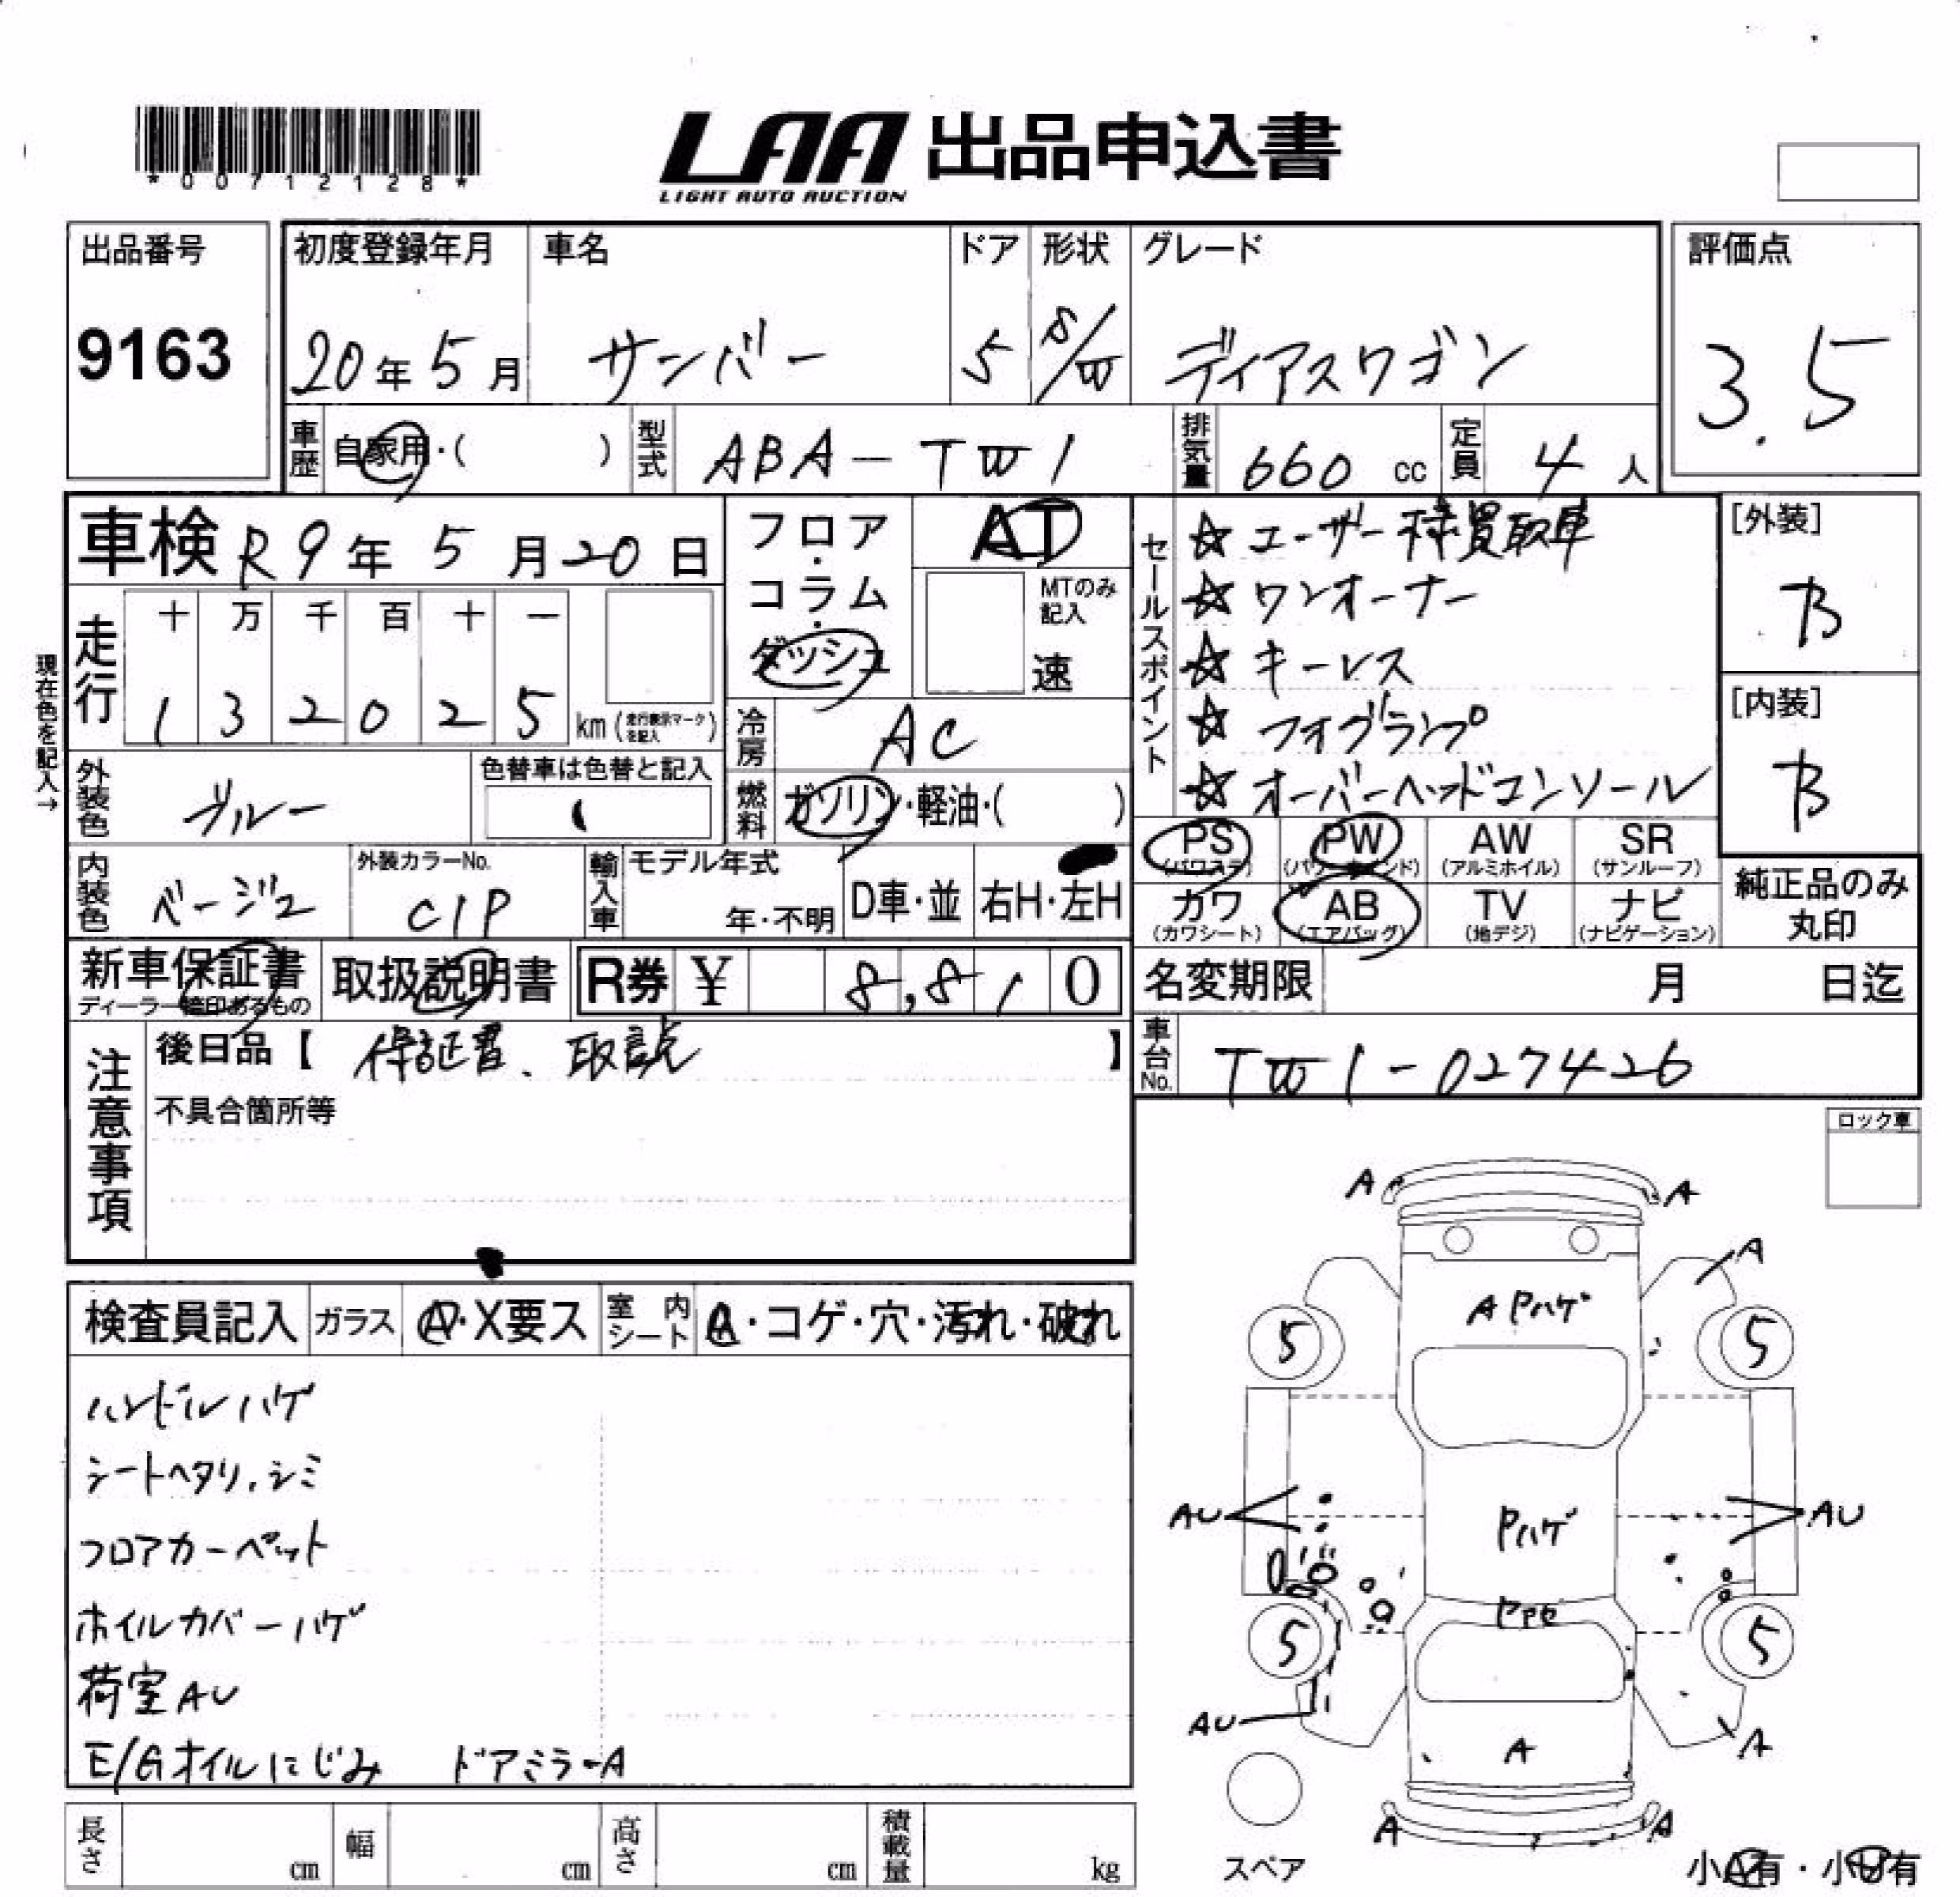 *00712128*
LAA 出品申込書
LIGHT AUTO AUCTION
出品番号
9163
初度登録年月
20年5月
車名
サンバー
ドア
5
形状
S/W
グレード
ディアスワゴン
評価点
3.5
車歴 自家用・( )
型式 ABA-TW1
排気量 660 cc
定員 4 人
車検 R9年5月20日
フロア・コラム・ダッシュ
AT
MTのみ記入
速
セールスポイント
☆ユーザー様買取車
☆ワンオーナー
☆キーレス
☆フォグランプ
☆オーバーヘッドコンソール
[外装]
B
[内装]
B
現在色を記入→
走行
十 万 千 百 十 一
1 3 2 0 2 5 km (走行表示マークを記入)
冷房 AC
燃料 ガソリン・軽油・( )
外装色 ブルー
色替車は色替と記入
PS (パワステ)
PW (パワーウインド)
AW (アルミホイル)
SR (サンルーフ)
カワ (カワシート)
AB (エアバッグ)
TV (地デジ)
ナビ (ナビゲーション)
純正品のみ丸印
内装色 ベージュ
外装カラーNo. C1P
輸入車 モデル年式
年・不明
D車・並
右H・左H
新車保証書
ディーラー捺印あるもの
取扱説明書
R券 ¥ 8,810
名変期限 月 日迄
注意事項
後日品【保証書、取説】
不具合箇所等
車台No. TW1-027426
ロック車
検査員記入 ガラス A・X要ス 室内シート A・コゲ・穴・汚れ・破れ
ハンドルハゲ
シートヘタリ、シミ
フロアカーペット
ホイルカバーハゲ
荷室AU
E/Gオイルにじみ ドアミラーA
A A
A
A Pハゲ
5 5
AU Pハゲ AU
5 5
AU
A A
A A
スペア
小A有・小U有
長さ cm 幅 cm 高さ cm 積載量 kg